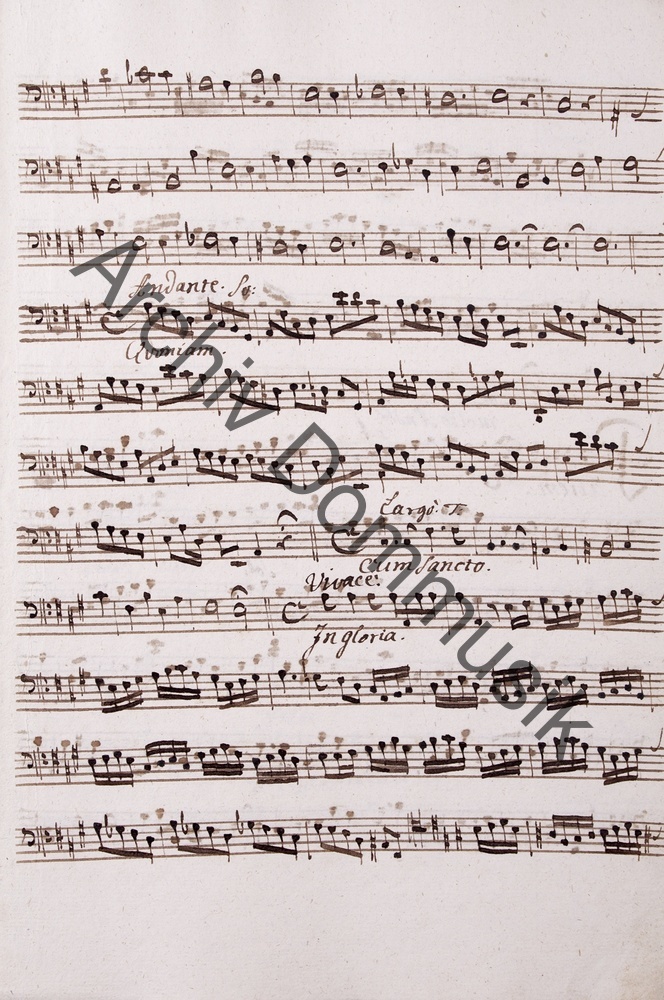 Andante. So:
Quoniam.
Largo. T.
Cum Sancto.
Vivace.
In gloria.
Archiv Dommusik